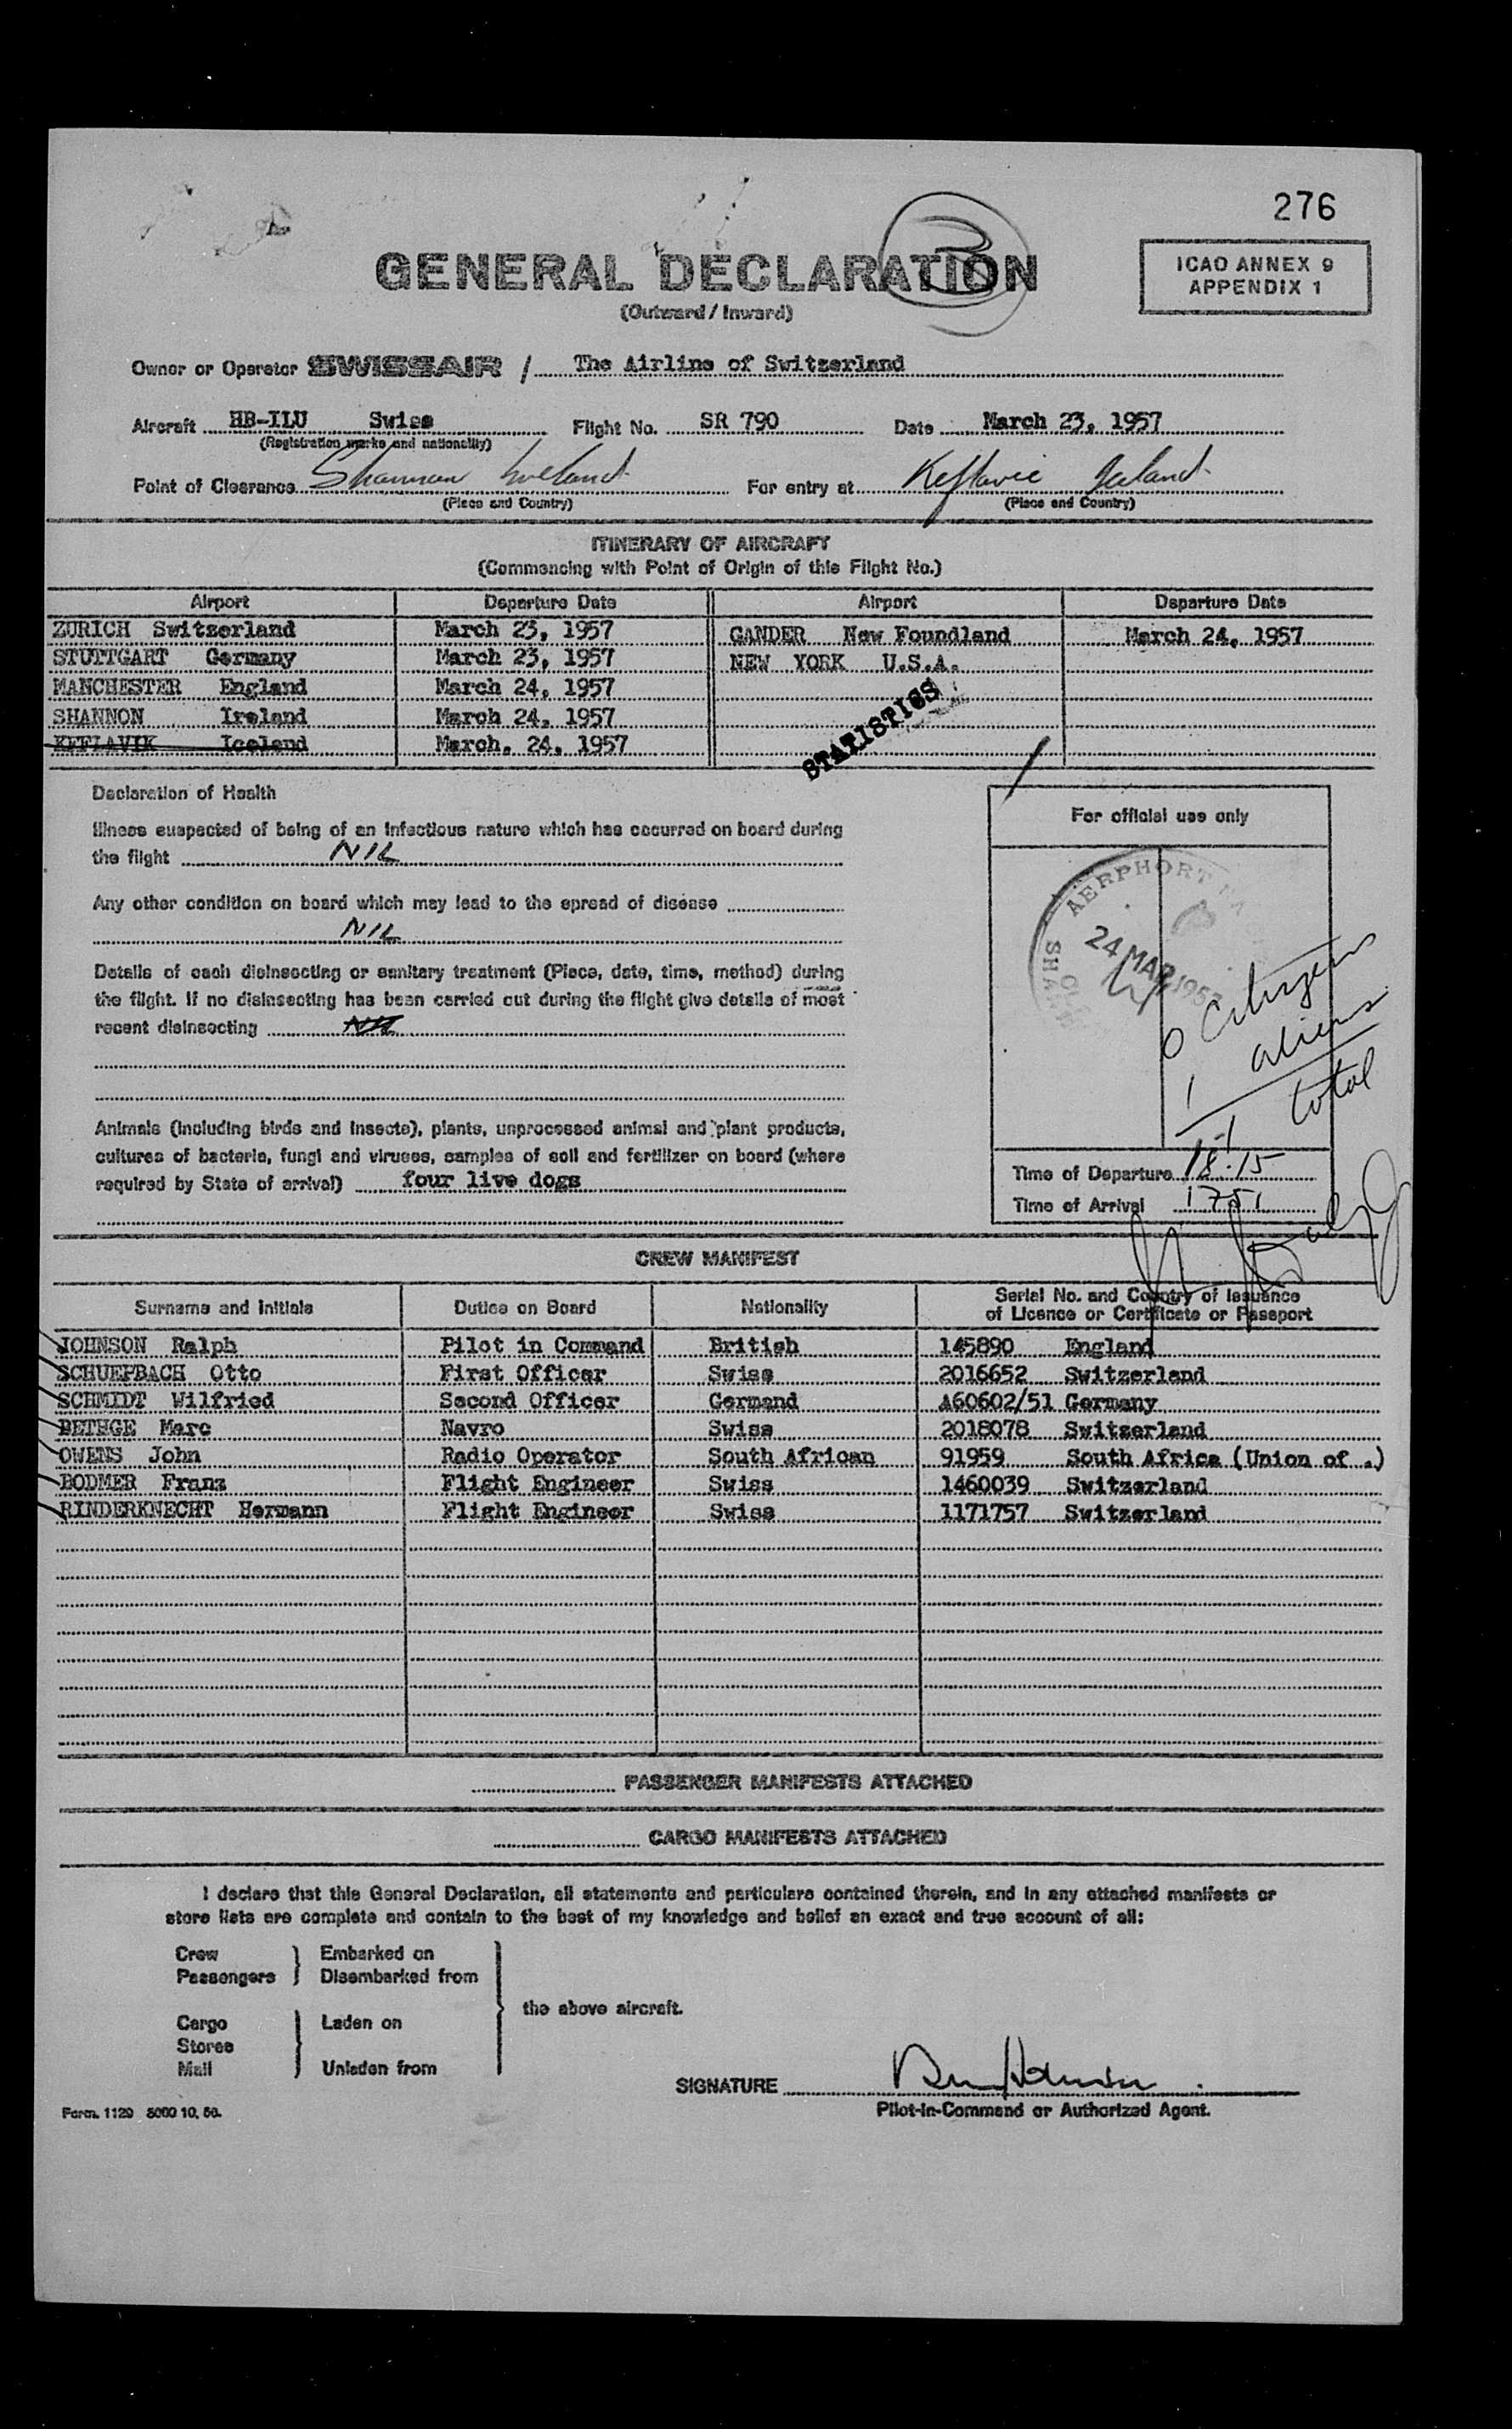 276
GENERAL DECLARATION
(Outward / Inward)
ICAO ANNEX 9
APPENDIX 1
Owner or Operator SWISSAIR / The Airline of Switzerland
Aircraft HB-ILU Swiss Flight No. SR 790 Date March 23, 1957
(Registration marks and nationality)
Point of Clearance Shannon Ireland For entry at Keflavic Iceland
(Place and Country) (Place and Country)
ITINERARY OF AIRCRAFT
(Commencing with Point of Origin of this Flight No.)
Airport Departure Date Airport Departure Date
ZURICH Switzerland March 23, 1957 GANDER New Foundland March 24, 1957
STUTTGART Germany March 23, 1957 NEW YORK U.S.A.
MANCHESTER England March 24, 1957
SHANNON Ireland March 24, 1957
KEFLAVIK Iceland March. 24, 1957
STATISTICS
Declaration of Health
Illness suspected of being of an infectious nature which has occurred on board during
the flight NIL
Any other condition on board which may lead to the spread of disease
NIL
Details of each disinsecting or sanitary treatment (Place, date, time, method) during
the flight. If no disinsecting has been carried out during the flight give details of most
recent disinsecting NIL
Animals (including birds and insects), plants, unprocessed animal and plant products,
cultures of bacteria, fungi and viruses, samples of soil and fertilizer on board (where
required by State of arrival) four live dogs
For official use only
AERPHORT
24 MAR 1957
0 Citizens
1 aliens
1 total
Time of Departure 18:15
Time of Arrival 1751
CREW MANIFEST
Surname and Initials Duties on Board Nationality Serial No. and Country of Issuance
of Licence or Certificate or Passport
JOHNSON Ralph Pilot in Command British 145890 England
SCHUEPBACH Otto First Officer Swiss 2016652 Switzerland
SCHMIDT Wilfried Second Officer Germand A60602/51 Germany
BETHGE Marc Navro Swiss 2018078 Switzerland
OWENS John Radio Operator South African 91959 South Africa (Union of .)
BODMER Franz Flight Engineer Swiss 1460039 Switzerland
RINDERKNECHT Hermann Flight Engineer Swiss 1171757 Switzerland
PASSENGER MANIFESTS ATTACHED
CARGO MANIFESTS ATTACHED
I declare that this General Declaration, all statements and particulars contained therein, and in any attached manifests or
store lists are complete and contain to the best of my knowledge and belief an exact and true account of all:
Crew Embarked on
Passengers Disembarked from
the above aircraft.
Cargo Laden on
Stores
Mail Unladen from
SIGNATURE
Pilot-in-Command or Authorized Agent.
Form. 1129 5000 10. 56.